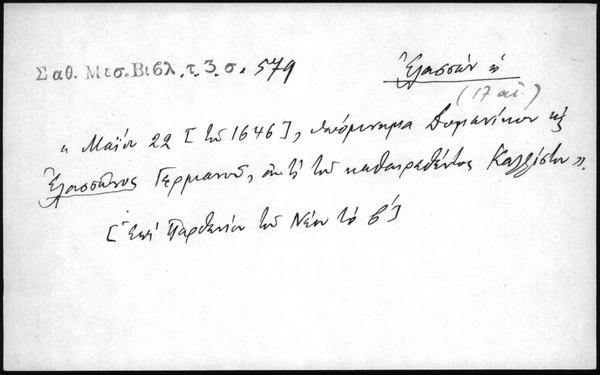 Σαθ. Μεσ. Βιβλ. τ. 3. σ. 579
Ἐλασσὼν ἡ
(17 αἰ.)
« Μαΐου 22 [τοῦ 1646], ὑπόμνημα Δομενίκου κ̣
Ἐλασσῶνος Γερμανοῦ, ἀντὶ τοῦ καθαιρεθέντος Καλλίστου».
[Ἐπὶ Παρθενίου τοῦ Νέου τὸ β΄]